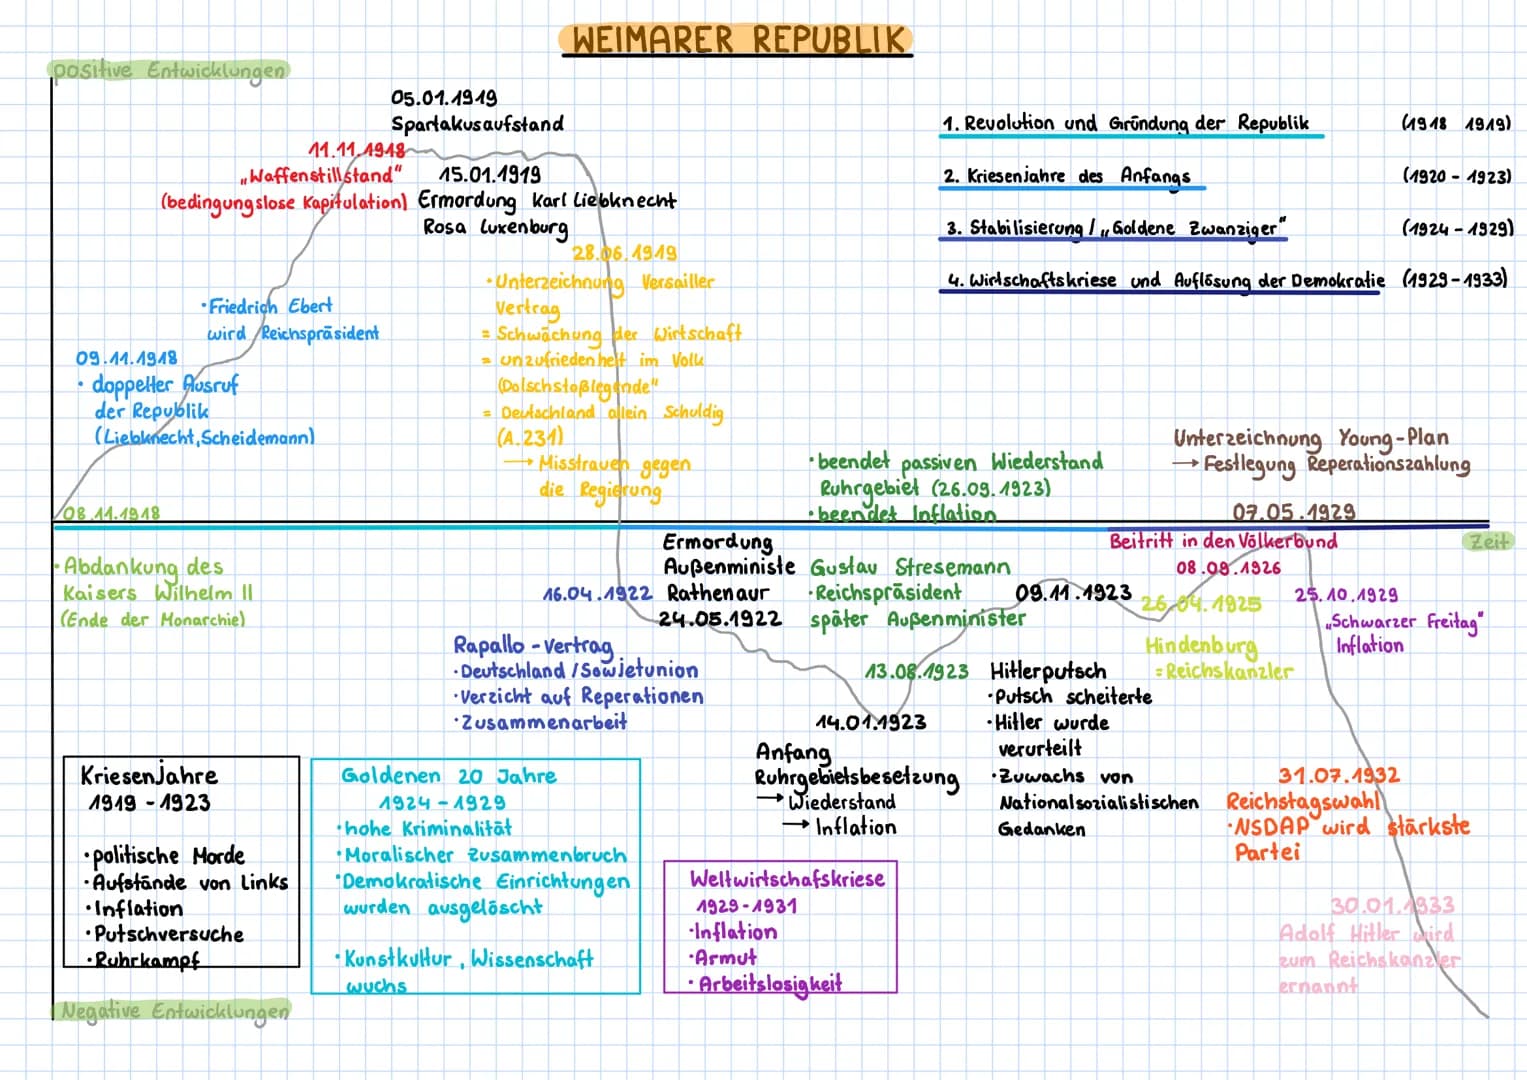 WEIMARER REPUBLIK
positive Entwicklungen
05.01.1919
Spartakusaufstand
11.11.1918
„Waffenstillstand“
(bedingungslose Kapitulation)
15.01.1919
Ermordung Karl Liebknecht
Rosa Luxenburg
1. Revolution und Gründung der Republik (1918 1919)
2. Kriesenjahre des Anfangs (1920 - 1923)
3. Stabilisierung / „Goldene Zwanziger“ (1924 - 1929)
4. Wirtschaftskriese und Auflösung der Demokratie (1929-1933)
28.06.1919
• Unterzeichnung Versailler
Vertrag
= Schwächung der Wirtschaft
= unzufriedenheit im Volk
(Dolschstoßlegende"
= Deutschland allein Schuldig
(A.231)
→ Misstrauen gegen
die Regierung
• Friedrich Ebert
wird Reichspräsident
09.11.1918
• doppelter Ausruf
der Republik
(Liebknecht, Scheidemann)
08.11.1918
• Abdankung des
Kaisers Wilhelm II
(Ende der Monarchie)
• beendet passiven Wiederstand
Ruhrgebiet (26.09.1923)
• beendet Inflation
Unterzeichnung Young-Plan
→ Festlegung Reperationszahlung
07.05.1929
Zeit
Ermordung
Außenministe
Rathenaur
24.05.1922
16.04.1922
Rapallo - Vertrag
• Deutschland / Sowjetunion
• Verzicht auf Reperationen
• Zusammenarbeit
Gustav Stresemann
• Reichspräsident
später Außenminister
13.08.1923
14.01.1923
Anfang
Ruhrgebietsbesetzung
→ Wiederstand
→ Inflation
09.11.1923
Hitlerputsch
• Putsch scheiterte
• Hitler wurde
verurteilt
• Zuwachs von
Nationalsozialistischen
Gedanken
Beitritt in den Völkerbund
08.09.1926
26.04.1925
Hindenburg
= Reichskanzler
25.10.1929
„Schwarzer Freitag“
Inflation
31.07.1932
Reichstagswahl
• NSDAP wird stärkste
Partei
30.01.1933
Adolf Hitler wird
zum Reichskanzler
ernannt
Kriesenjahre
1919 - 1923
• politische Morde
• Aufstände von Links
• Inflation
• Putschversuche
• Ruhrkampf
Goldenen 20 Jahre
1924 - 1929
• hohe Kriminalität
• Moralischer Zusammenbruch
• Demokratische Einrichtungen
wurden ausgelöscht
• Kunstkultur, Wissenschaft
wuchs
Weltwirtschafskriese
1929-1931
• Inflation
• Armut
• Arbeitslosigkeit
Negative Entwicklungen